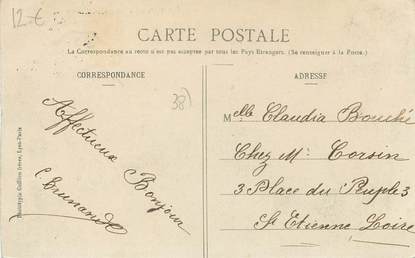 12-€
CARTE POSTALE
La Correspondance au recto n'est pas acceptée par tous les Pays Etrangers. (Se renseigner à la Poste.)
CORRESPONDANCE
38)
Affectueux
Bonjour
Phototypie Guillion frères, Lyon-Paris
ADRESSE
Melle Claudia Bouché
Chez Mr Corsin
3 Place du Peuple 3
St Etienne Loire